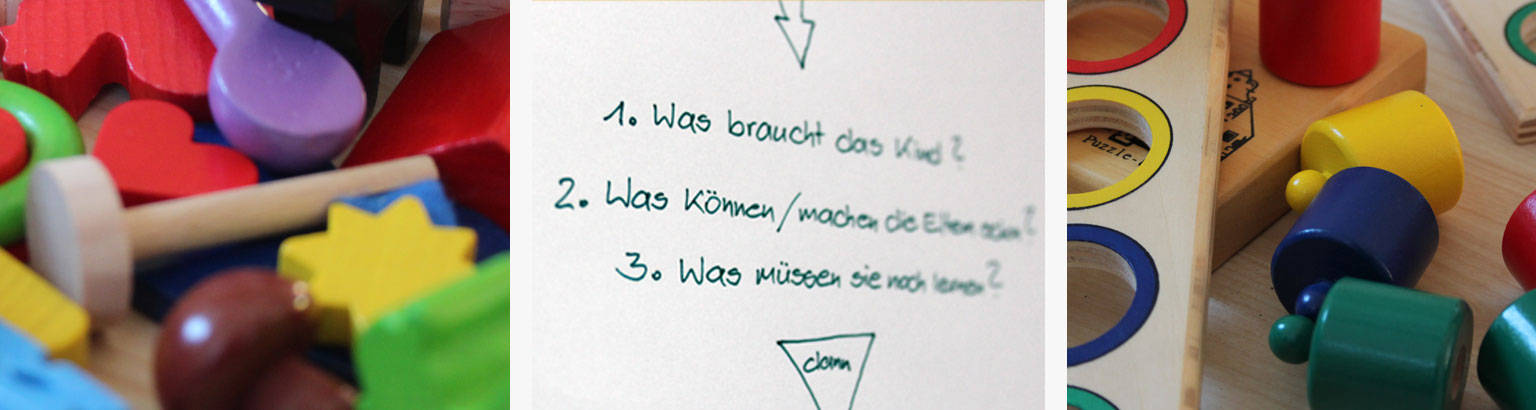 1. Was braucht das Kind?
2. Was können/machen die Eltern schon?
3. Was müssen sie noch lernen?
dann
Puzzle-